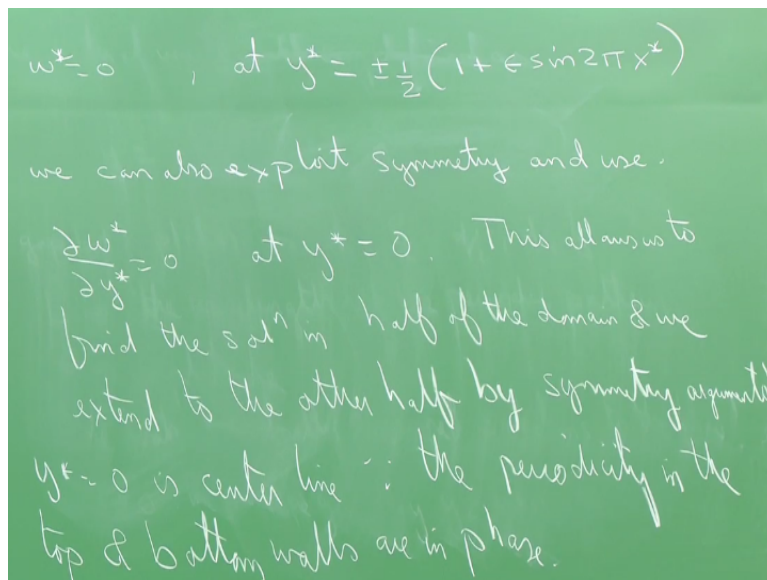 w* = 0 , at y* = ± 1/2 (1 + ϵ sin 2π x*)
we can also exploit symmetry and use.
∂w*/∂y* = 0 at y* = 0. This allows us to
find the solⁿ in half of the domain & we
extend to the other half by symmetry arguments
y* = 0 is center line ∵ the periodicity in the
top & bottom walls are in phase.